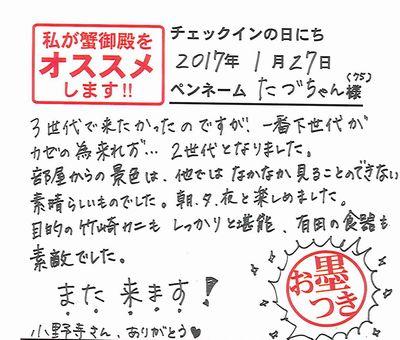 私が蟹御殿を
オススメ
します!!
チェックインの日にち
2017年 1月27日
ペンネーム たづちゃん(75)様
3世代で来たかったのですが、一番下世代が
カゼの為来れず… 2世代となりました。
部屋からの景色は、他では なかなか見ることのできない
素晴らしいものでした。朝、夕、夜と楽しめました。
目的の竹崎カニも しっかりと堪能、有田の食器も
素敵でした。
また 来ます!
小野寺さん、ありがとう♥
お墨つき